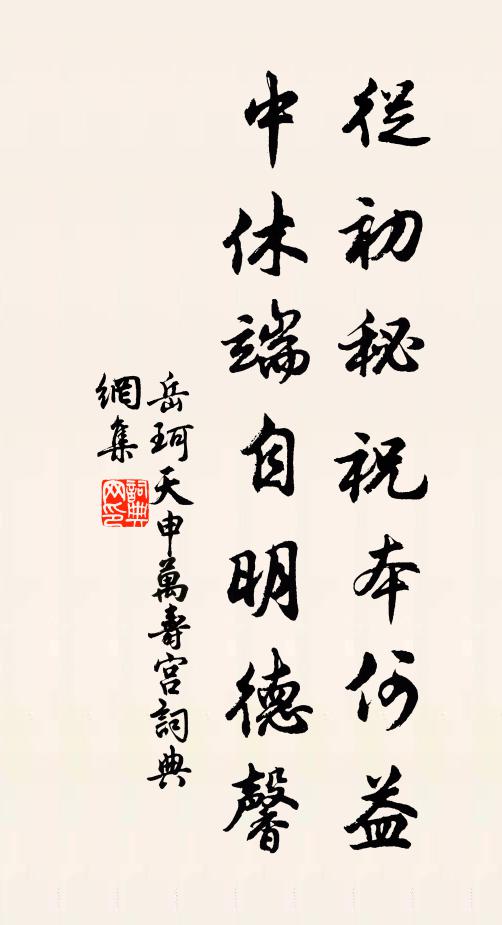 從初秘祝本何益
中休端自明德馨
岳珂天申萬壽宮詞典
網集
詞典
网印